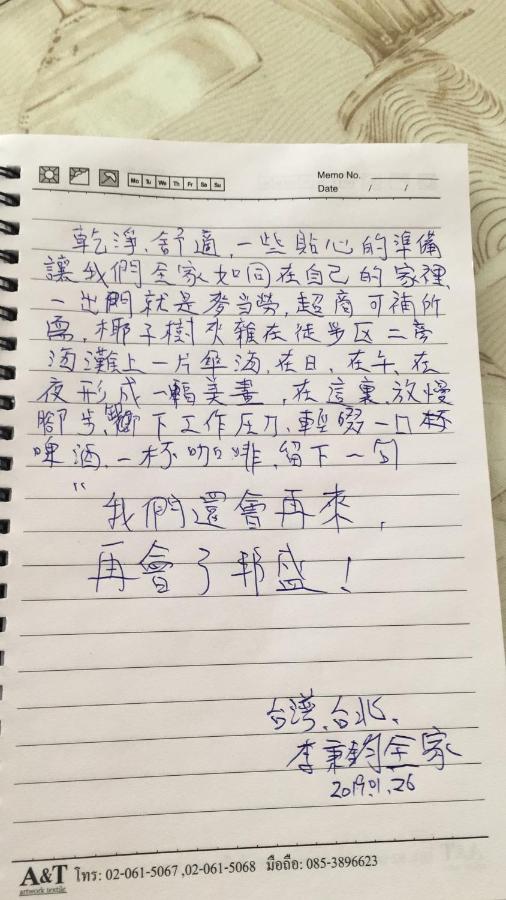 Memo No.
Mo Tu We Th Fr Sa Su
Date / /
乾淨、舒適,一些貼心的準備
讓我們全家如同在自己的家裡
一出門就是麥當勞,超商可補所
需,椰子樹夾雜在徒步区二旁
海灘上一片傘海,在日、在午、在
夜形成一幅美畫,在這裏,放慢
腳步、卸下工作压力、輕啜一口杯
啤酒、一杯咖啡,留下一句
“我們還會再來,
再會了邦盛!
台灣、台北、
李秉鈞全家
2019.01.26
A&T โทร: 02-061-5067 ,02-061-5068 มือถือ: 085-3896623
artwork textile